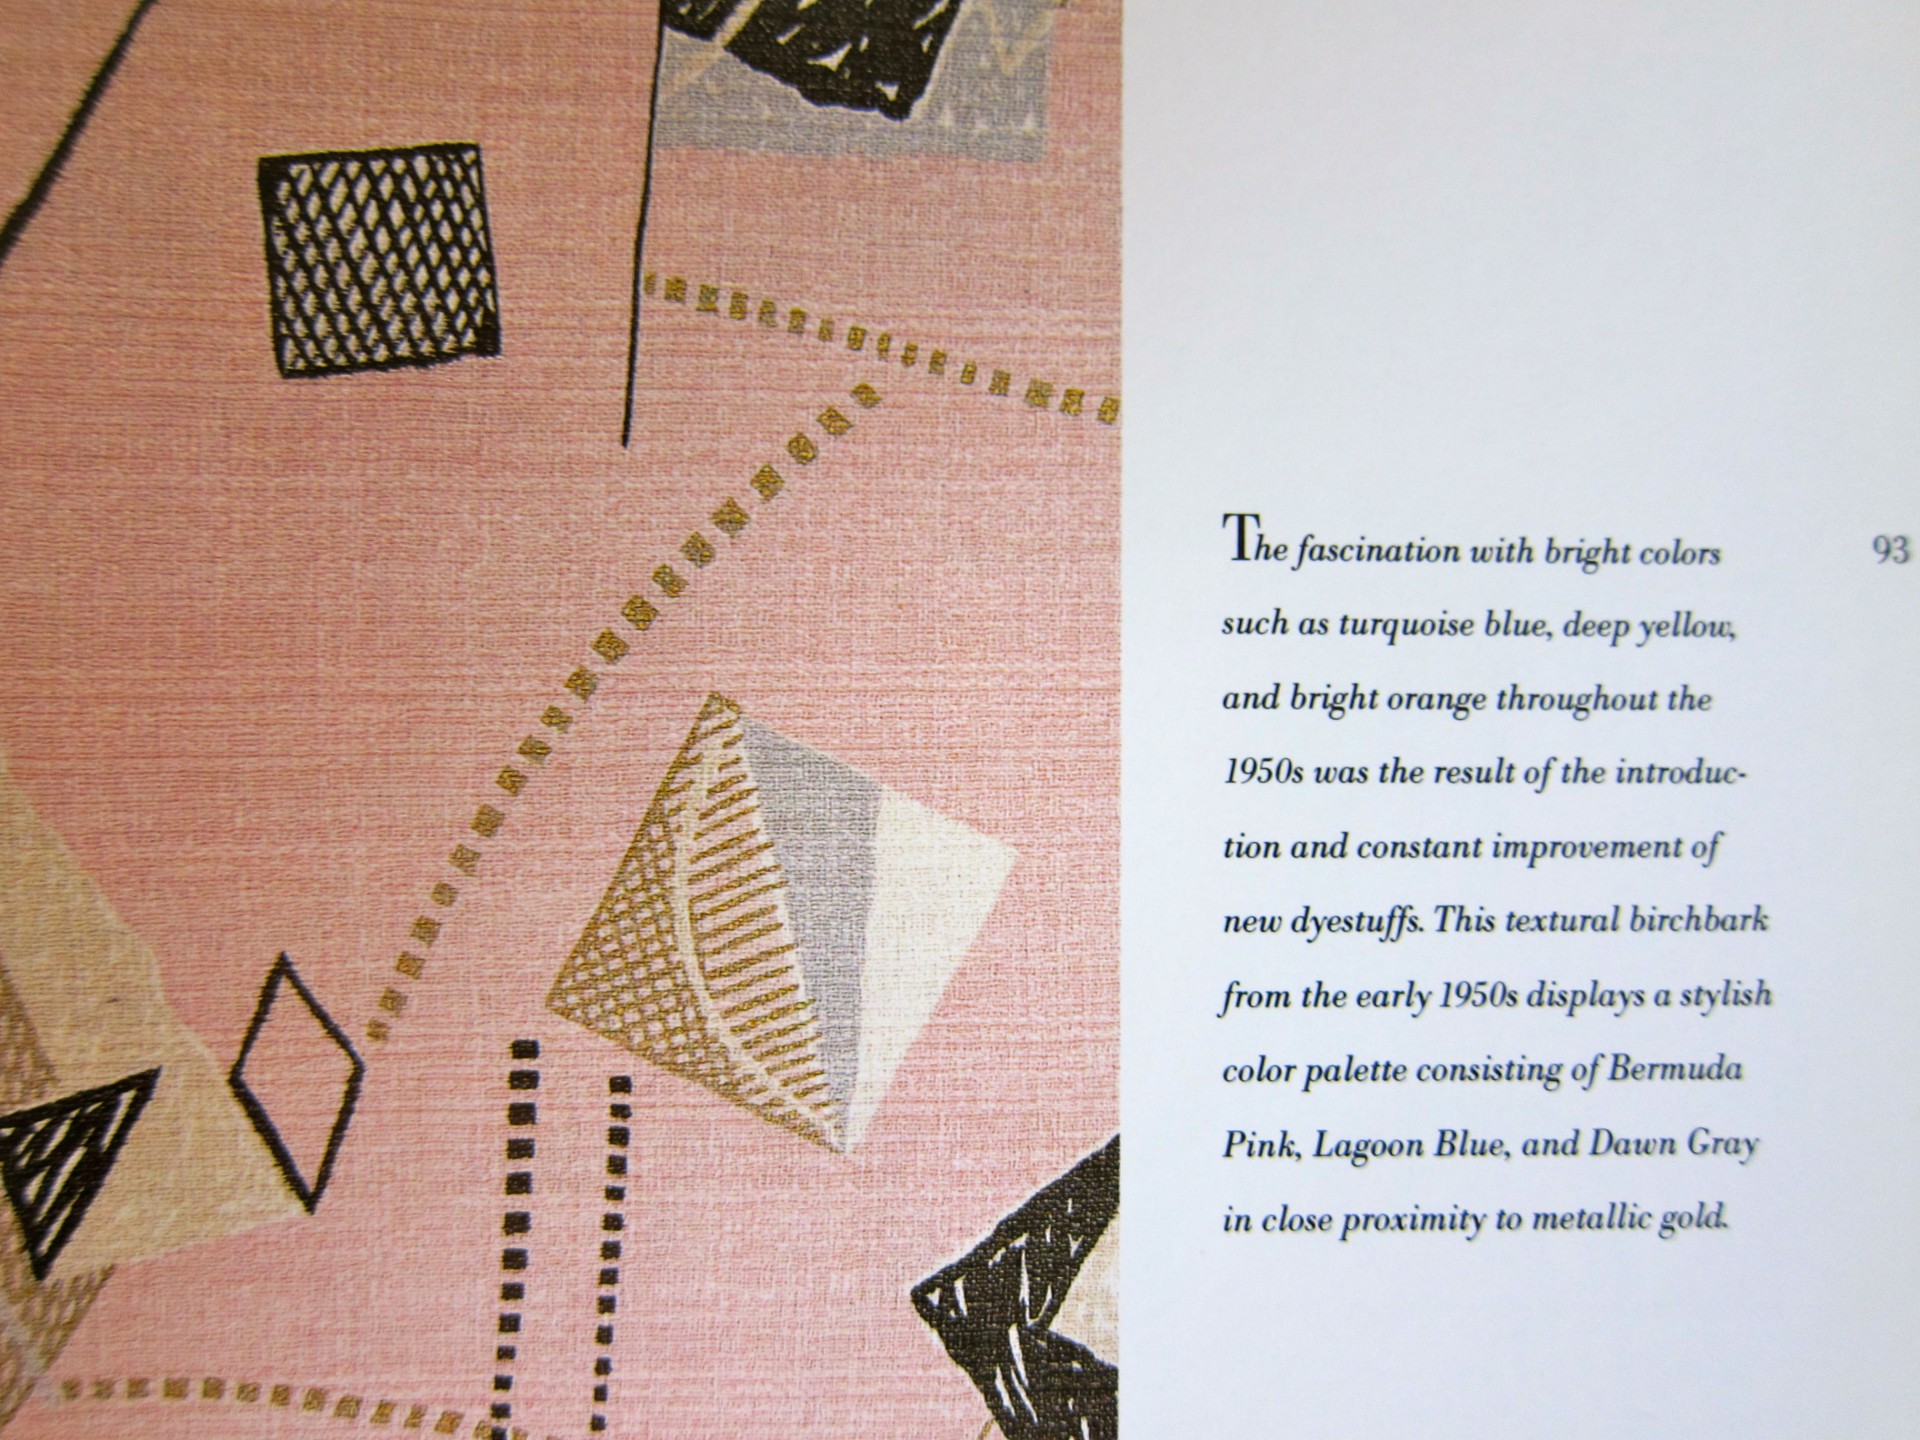 The fascination with bright colors
93
such as turquoise blue, deep yellow,
and bright orange throughout the
1950s was the result of the introduc-
tion and constant improvement of
new dyestuffs. This textural birchbark
from the early 1950s displays a stylish
color palette consisting of Bermuda
Pink, Lagoon Blue, and Dawn Gray
in close proximity to metallic gold.